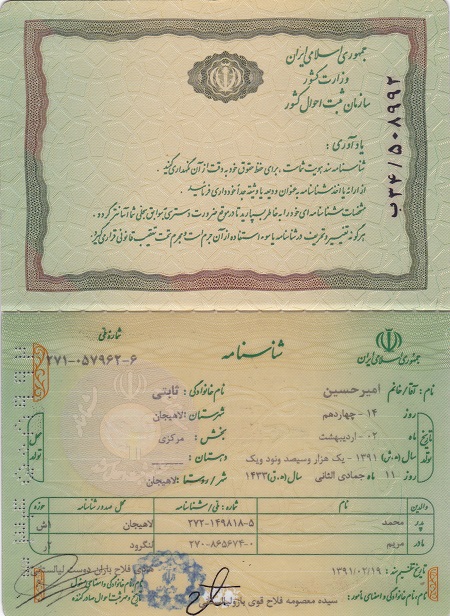 جمهوری اسلامی ایران
وزارت کشور
سازمان ثبت احوال کشور
ب۳۴/۵۰۸۹۹۲
یادآوری :
شناسنامه سند هویت شماست ، برای حفظ حقوق خود به دقت از آن نگهداری کنید .
از ارائه یا اخذ شناسنامه به عنوان ودیعه یا وثیقه جداً خودداری فرمائید .
مشخصات شناسنامه ای خود را به خاطر بسپارید تا در موقع ضرورت دسترسی به سوابق سجلی شما آسانتر گردد .
هرگونه تغییر و تحریف در شناسنامه یا سوء استفاده از آن جرم است و مجرم تحت تعقیب قانونی قرار می گیرد .
جمهوری اسلامی ایران
شناسنامه
شماره ملی
۲۷۱-۰۵۷۹۶۲-۶
نام : آقا/خانم امیرحسین نام خانوادگی : ثابتی
تاریخ تولد
روز ۱۴- چهاردهم
ماه ۰۲- اردیبهشت
سال (ه.ش) ۱۳۹۱ - یک هزار وسیصد ونود ویک
۱۱ ماه جمادی الثانی سال (ه.ق) ۱۴۳۳
محل تولد
شهرستان : لاهیجان
بخش : مرکزی
دهستان :
شهر / روستا : لاهیجان
والدین نام شماره : ملی / شناسنامه محل صدور شناسنامه حوزه
پدر محمد ۲۷۲-۱۴۹۸۱۸-۵ لاهیجان
مادر مریم ۲۷۰-۸۶۵۶۷۴-۰ لنگرود
تاریخ تنظیم سند : ۱۳۹۱/۰۲/۱۹
نام نام خانوادگی و امضای مأمور :
سیده معصومه فلاح قوی